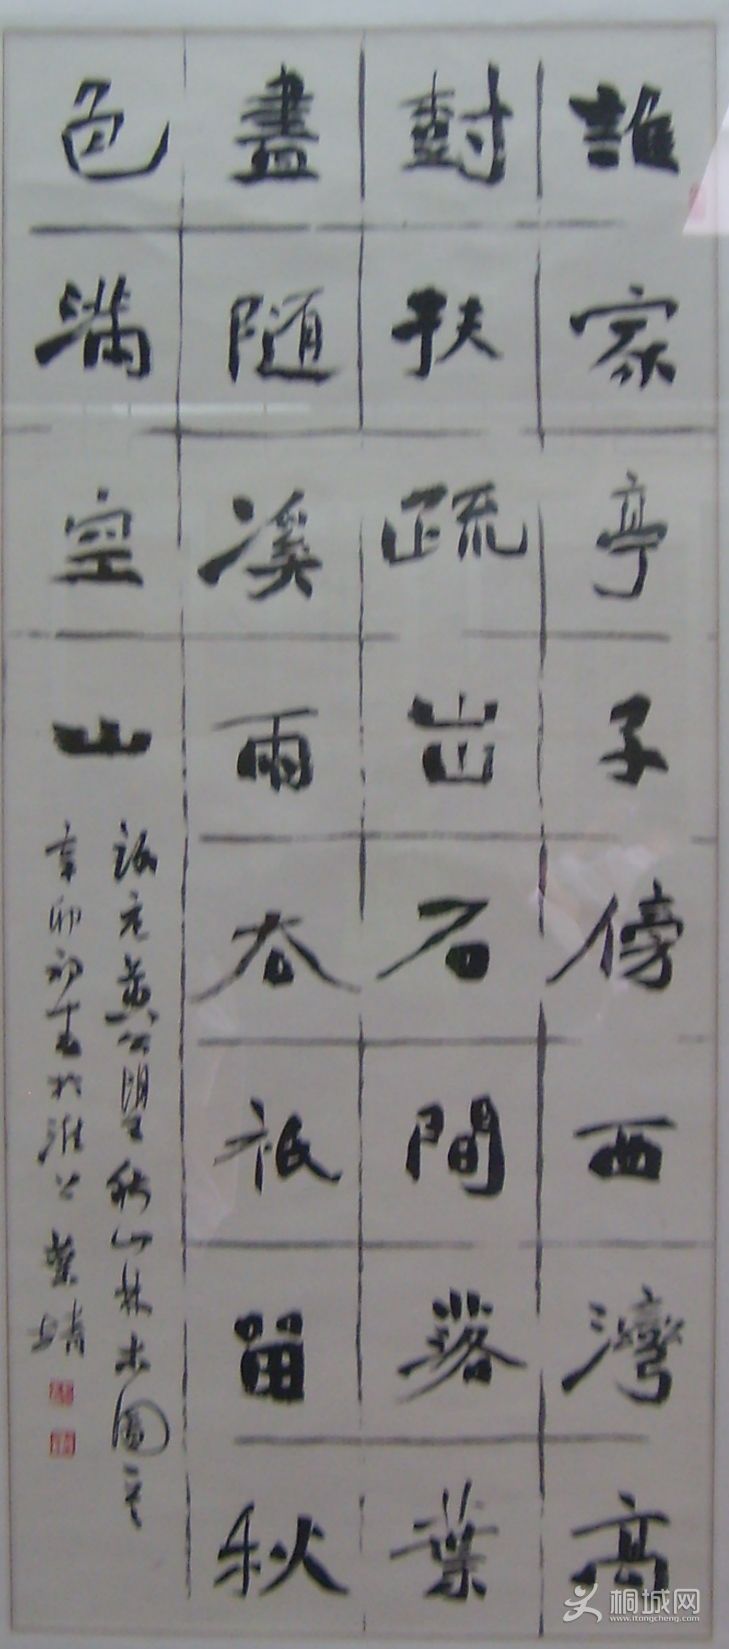 誰家亭子傍西灣高
尌扶疏出石間落葉
盡随溪雨去祇留秋
色滿空山
錄元黃公望秋山林木圖一首
辛卯初春於淮上葉靖
桐城网
www.itongcheng.com